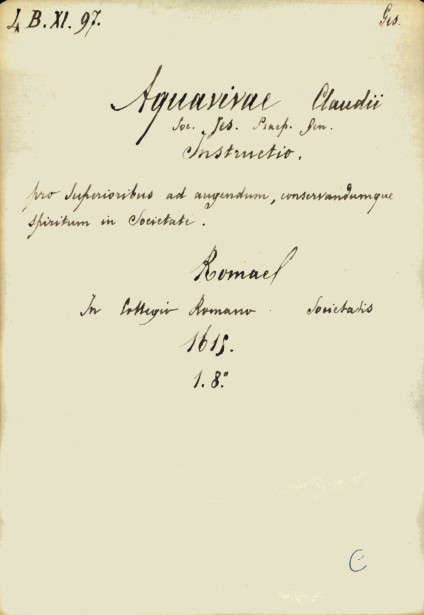 4, B. XI. 97. Ges.
Aquavivae Claudii
Soc. Jes. Praep. Gen.
Instructio.
pro Superioribus ad augendum, conservandumque
spiritum in Societate.
Romae
In Collegio Romano Societatis
1615.
1. 8°
C